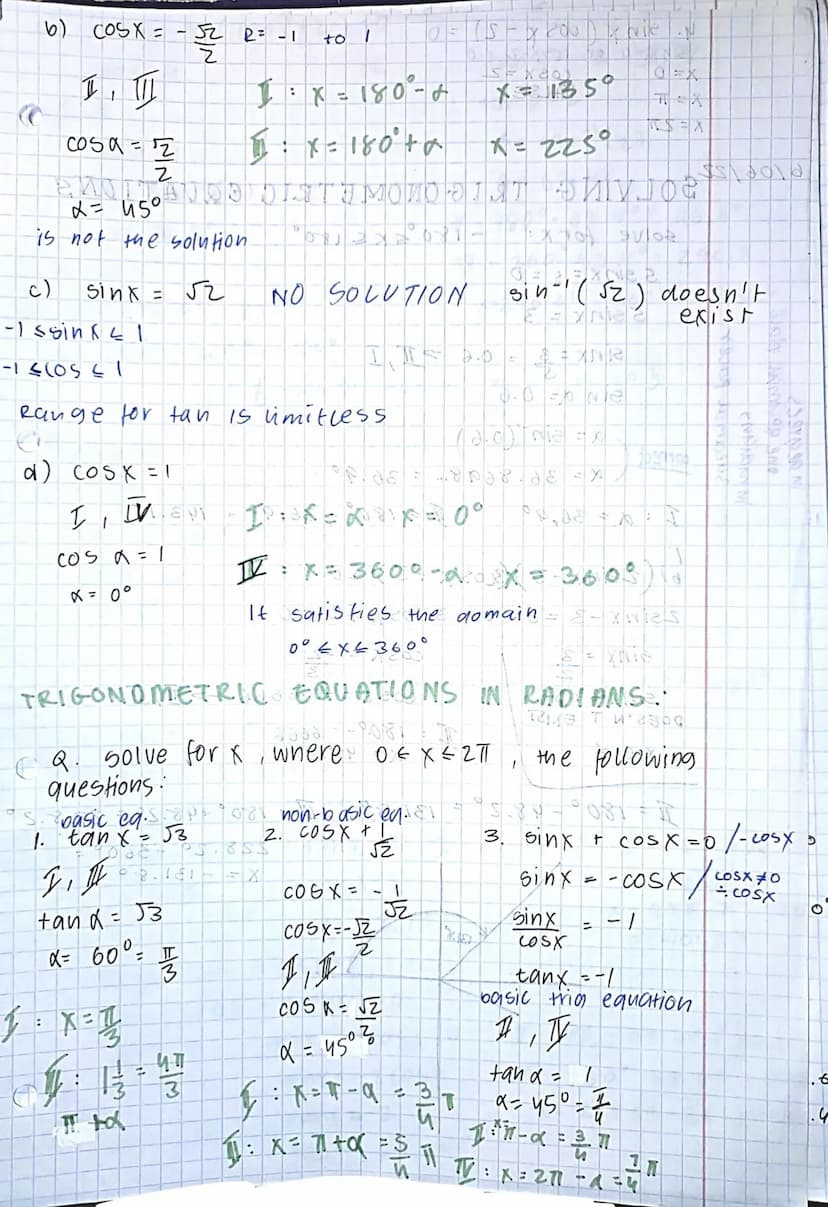 b) cosx = - √2/2 R= -1 to 1
II, III II : x = 180° - α x = 135°
cosα = √2/2 III : x = 180° + α x = 225°
α = 45°
is not the solution
c) sinx = √2 NO SOLUTION sin⁻¹(√2) doesn't exist
-1 ≤ sinx ≤ 1
-1 ≤ cos ≤ 1
Range for tan is limitless
d) cosx = 1
I, IV I : x = α x = 0°
cos α = 1
IV : x = 360° - α x = 360°
α = 0°
It satisfies the domain
0° ≤ x ≤ 360°
TRIGONOMETRIC EQUATIONS IN RADIANS:
Q. solve for x, where 0 ≤ x ≤ 2π, the following
questions:
basic eq.
1. tan x = √3
I, III
tan α = √3
α = 60° = π/3
I : x = π/3
III : 1 1/3 = 4π/3
π + α
non-basic eq.
2. cosx + 1/√2
cosx = - 1/√2
cosx = - √2/2
II, III
cos α = √2/2
α = 45°
II : x = π - α = 3/4 π
III : x = π + α = 5/4 π
3. sinx + cosx = 0 /-cosx
sinx = -cosx / cosx ≠ 0 ÷cosx
sinx/cosx = -1
tanx = -1
basic trig equation
II, IV
tan α = 1
α = 45° = π/4
II : x = π - α = 3/4 π
IV : x = 2π - α = 7/4 π